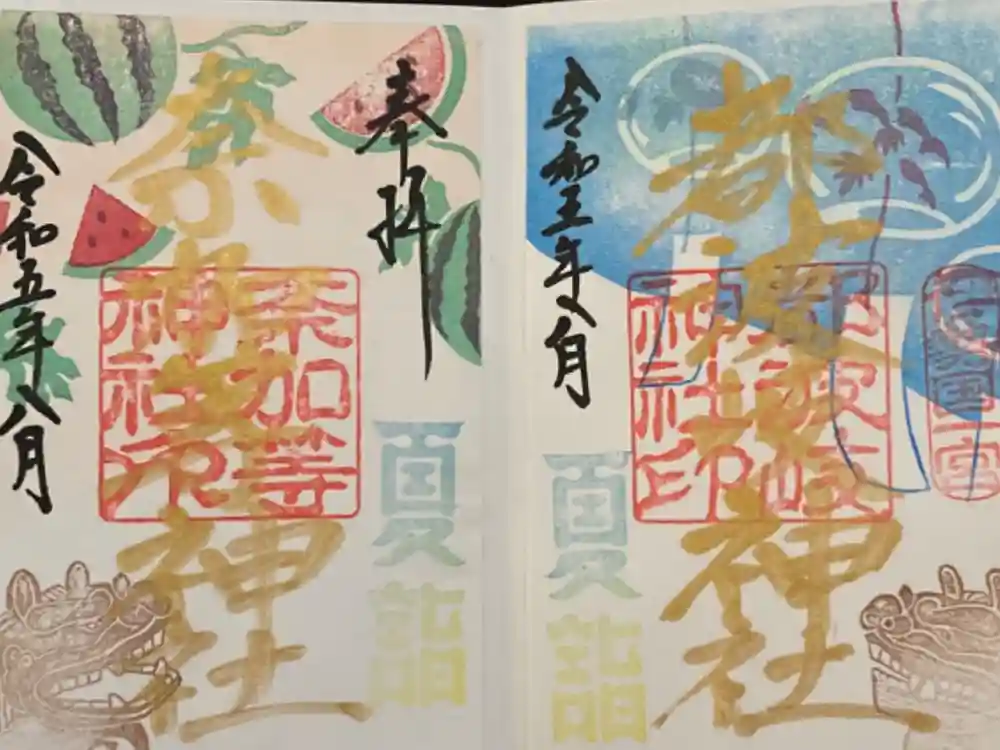 都波岐神社
都波岐神社印
令和五年八月
夏詣
奉拝
夏詣
奈加等神社
奈加等神社印
令和五年八月